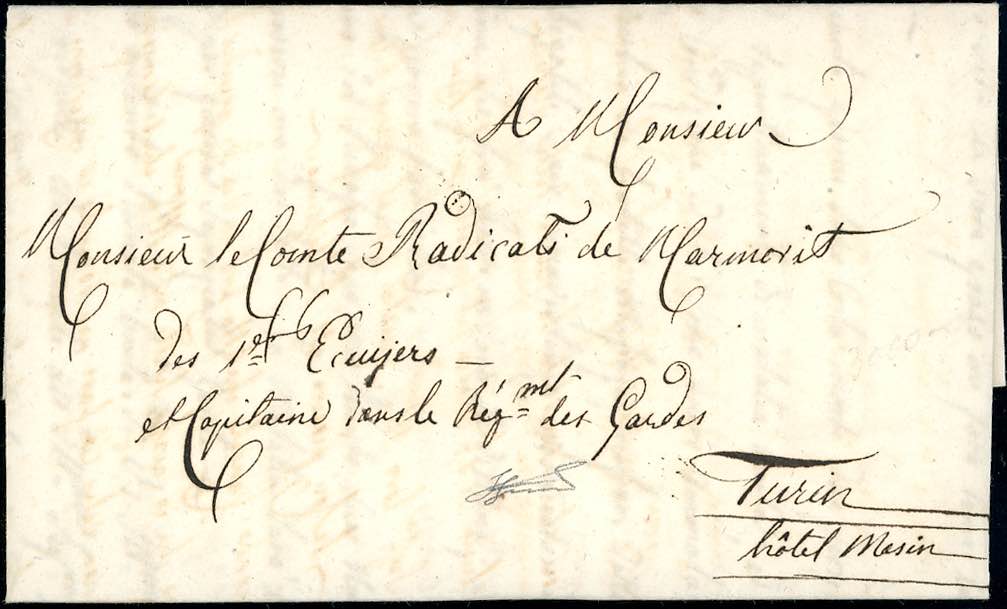 A Monsieur
Monsieur le Comte Radicati de Marmorit
des 1ers Ecuijers —
et Capitaine dans le Régmt des Gardes
Turin
hôtel Masin